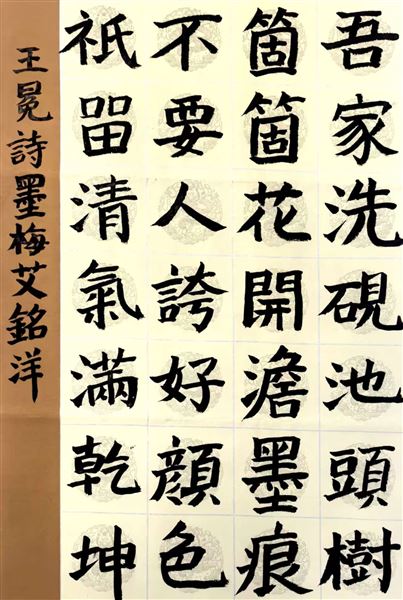 吾家洗硯池頭樹
箇箇花開澹墨痕
不要人誇好顔色
祇畱清氣滿乾坤
王冕詩墨梅艾銘洋